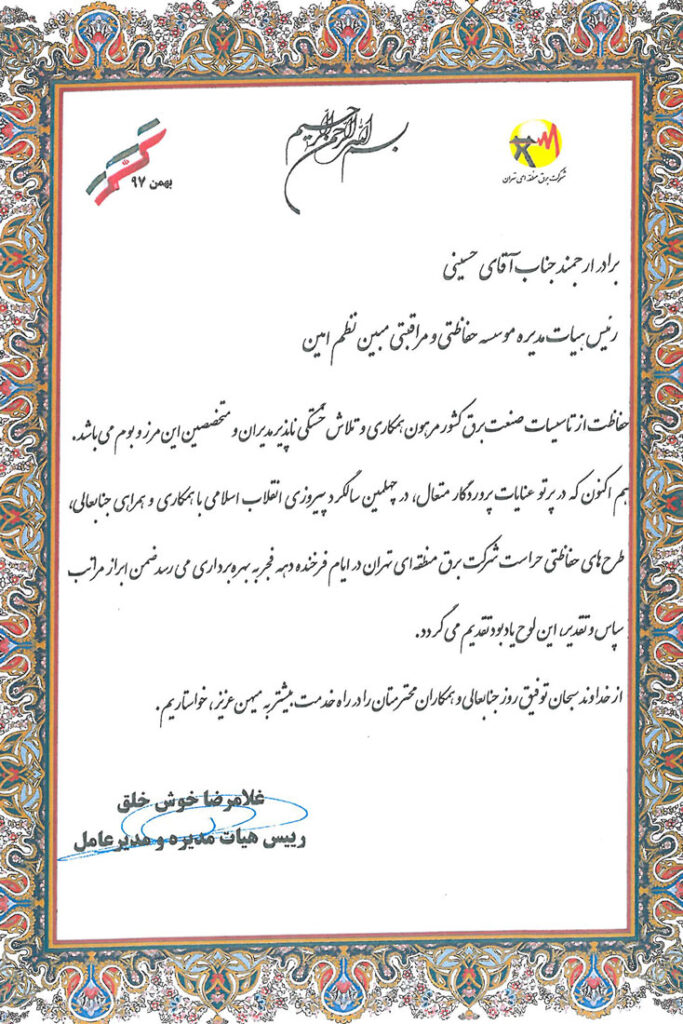 بسم الله الرحمن الرحیم
شرکت برق منطقه ای تهران
بهمن ۹۷
برادر ارجمند جناب آقای حسینی
رئیس هیات مدیره موسسه حفاظتی و مراقبتی مبین نظم امین
حفاظت از تاسیسات صنعت برق کشور مرهون همکاری و تلاش خستگی ناپذیر مدیران و متخصصین این مرز و بوم می باشد.
هم اکنون که در پرتو عنایات پروردگار متعال، در چهلمین سالگرد پیروزی انقلاب اسلامی با همکاری و همراهی جنابعالی،
طرح های حفاظتی حراست شرکت برق منطقه ای تهران در ایام فرخنده دهه فجر به بهره برداری می رسد ضمن ابراز مراتب
سپاس و تقدیر، این لوح یادبود تقدیم می گردد.
از خداوند سبحان توفیق روز جنابعالی و همکاران محترمتان را در راه خدمت بیشتر به میهن عزیز، خواستاریم.
غلامرضا خوش خلق
رییس هیات مدیره و مدیرعامل